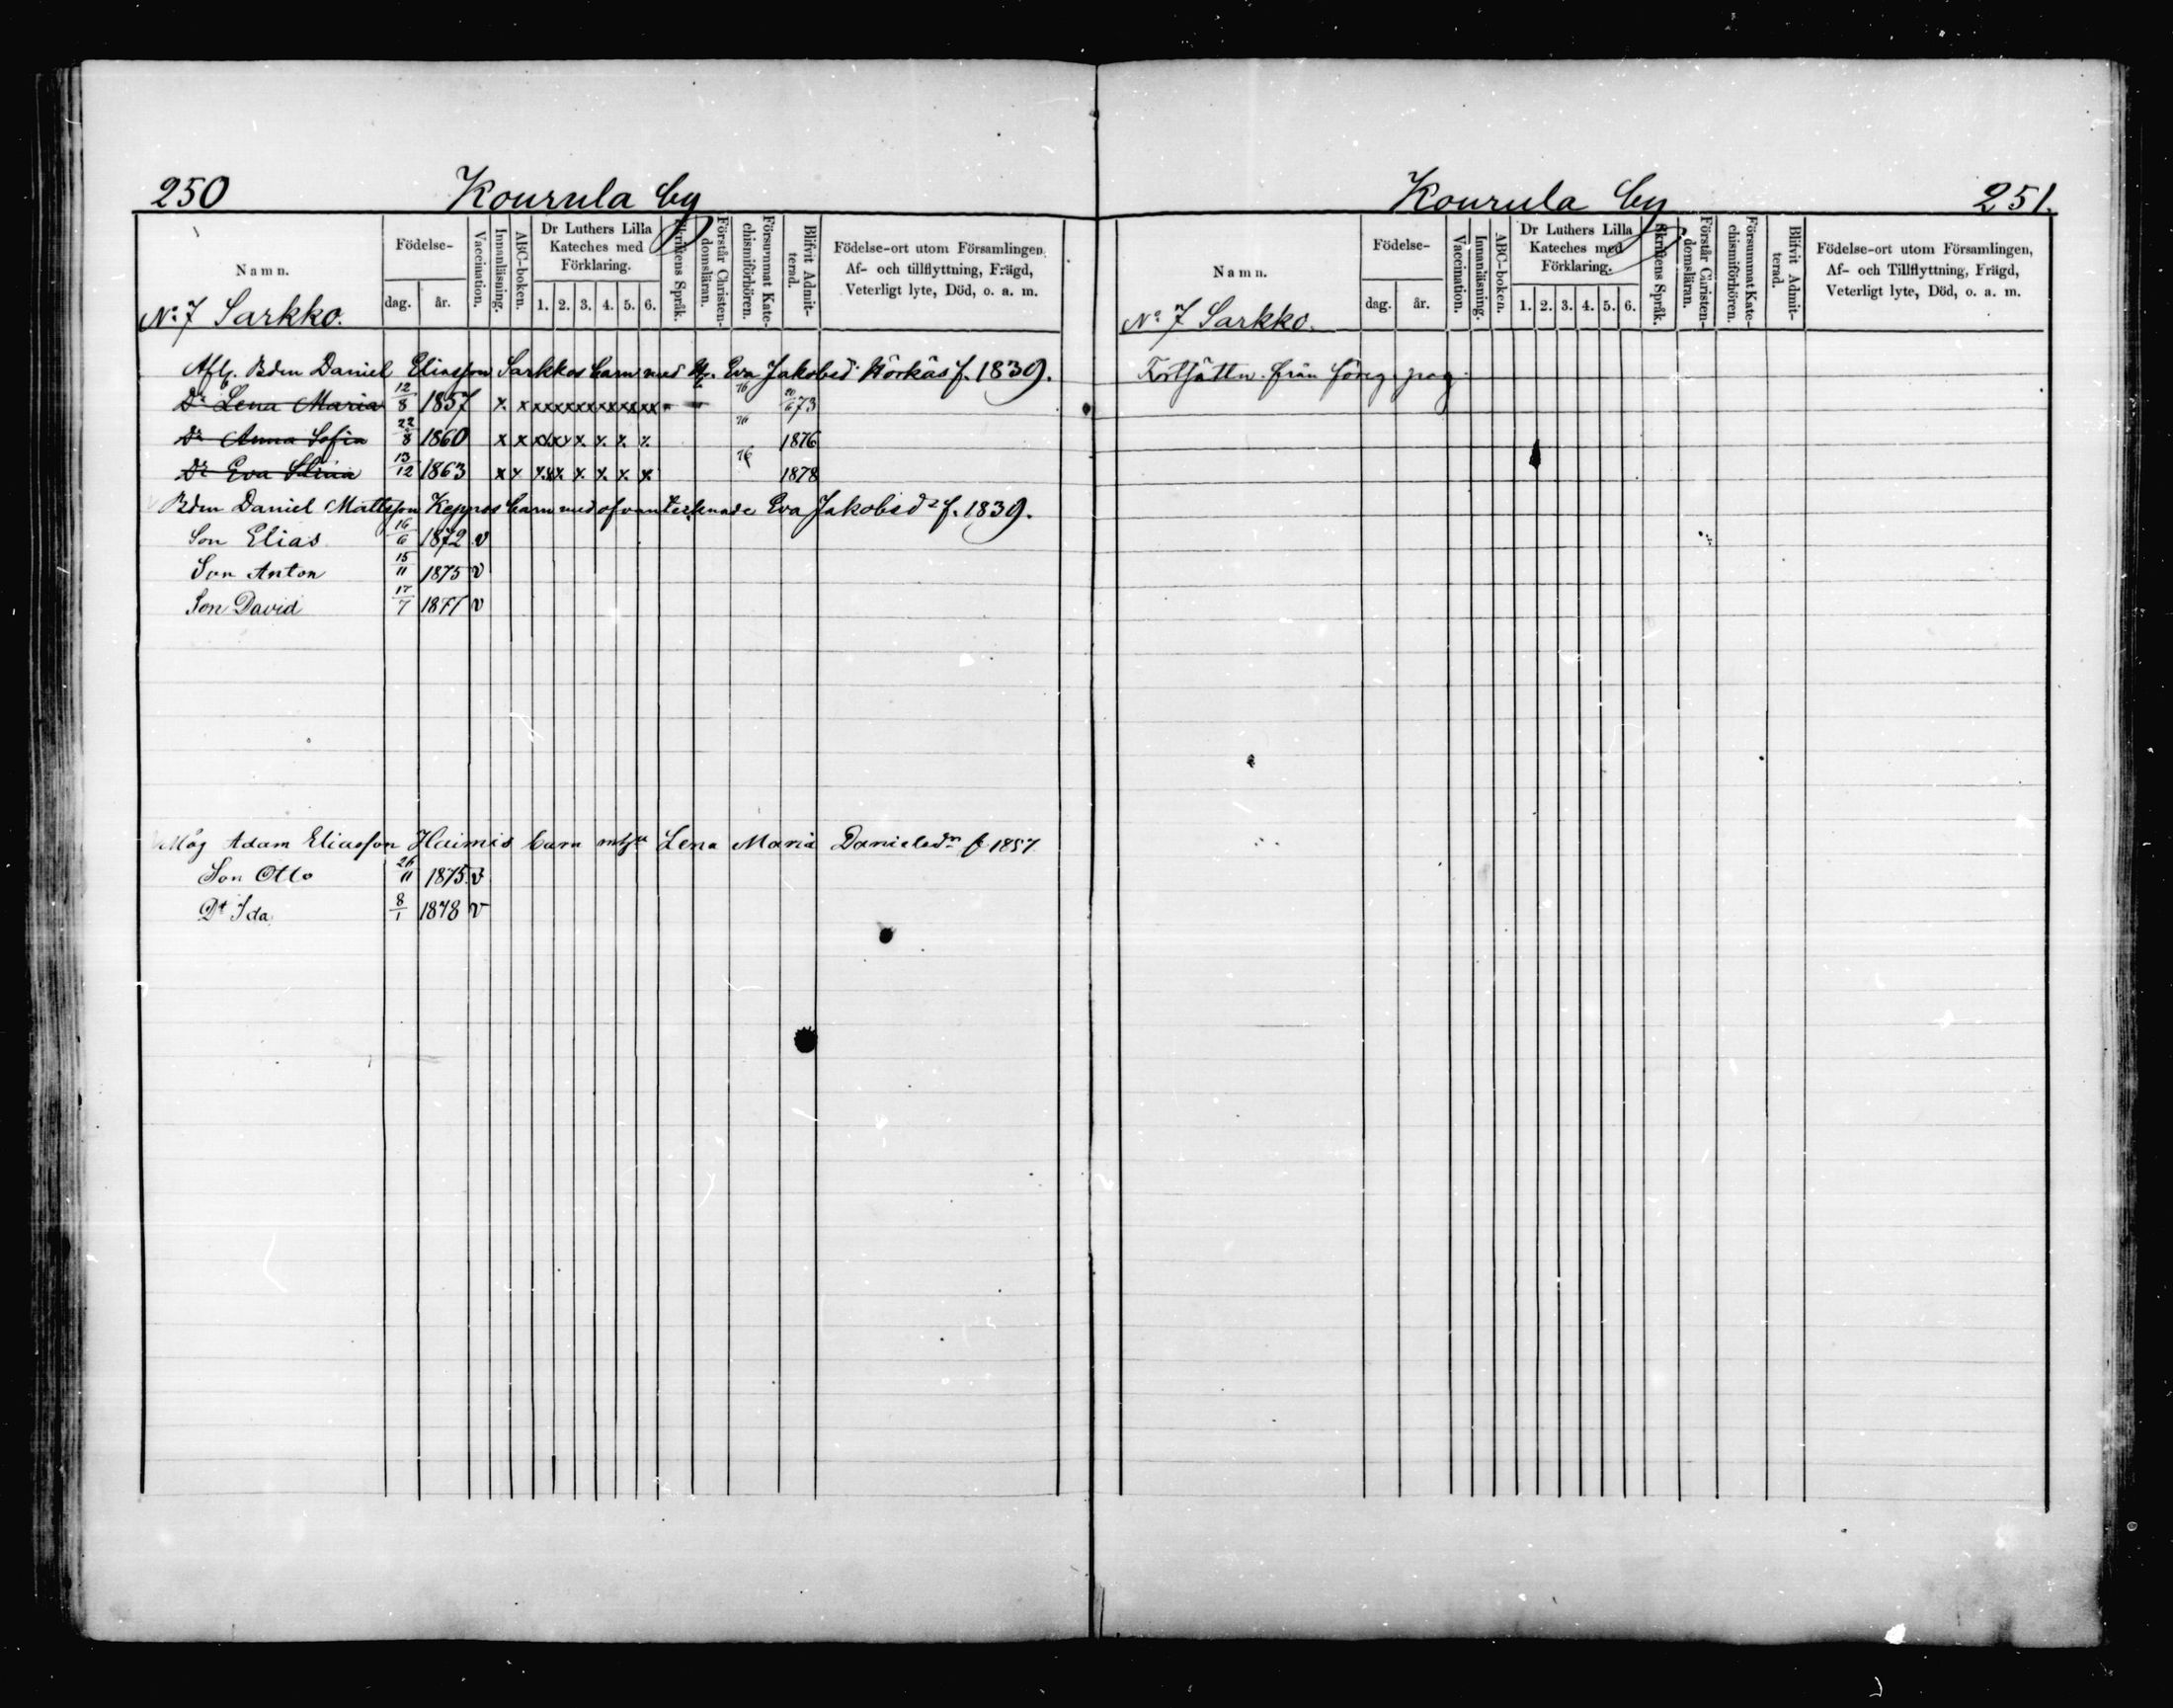 250 Kourula by
Namn. Födelse- dag. år. Vaccination. Innanläsning. ABC-boken. Dr Luthers Lilla Kateches med Förklaring. 1. 2. 3. 4. 5. 6. Skriftens Språk. Förstår Christen-domsläran. Försummat Kate-chismiförhören. Blifvit Admit-terad. Födelse-ort utom Församlingen, Af- och tillflyttning, Frägd, Veterligt lyte, Död, o. a. m.
No 7 Sarkko.
Afl. Bdm Daniel Eliasson Sarkkos barn med Eva Jakobsd f. 1839.
Dr Lena Maria 12/8 1857 x x xxxxxxxxxxxx 76 /6 73
Dr Anna Sofia 22/8 1860 x x xxxx x x x x 76 1876
Dr Eva 13/12 1863 x x xxx x x x x 76 1878
Bdm Daniel Mattsson Keppos barn med ofvanteknade Eva Jakobsdr f. 1839.
Son Elias 16/6 1872 v
Son Anton 15/11 1875 v
Son David 17/7 1877 v
Måg Adam Eliasson Haimis barn Lena Maria Danielsdr f 1857
Son Otto 26/11 1875 v
Dr Ida 8/1 1878 v
Kourula by 251.
Namn. Födelse- dag. år. Vaccination. Innanläsning. ABC-boken. Dr Luthers Lilla Kateches med Förklaring. 1. 2. 3. 4. 5. 6. Skriftens Språk. Förstår Christen-domsläran. Försummat Kate-chismiförhören. Blifvit Admit-terad. Födelse-ort utom Församlingen, Af- och Tillflyttning, Frägd, Veterligt lyte, Död, o. a. m.
No 7 Sarkko.
Fortsättn. från föreg. pag.